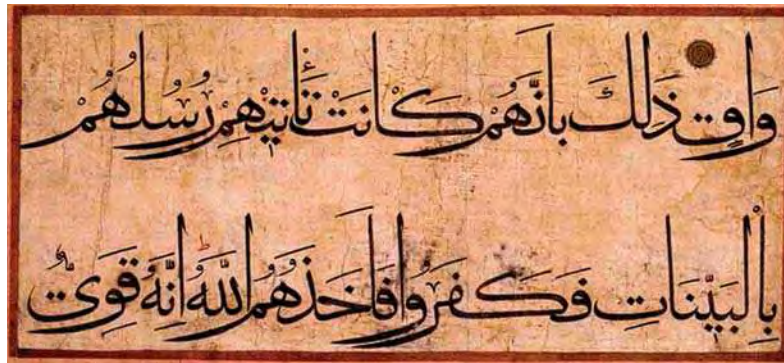 وَاقٍ ذَلِكَ بِأَنَّهُمْ كَانَتْ تَأْتِيهِمْ رُسُلُهُمْ
بِالْبَيِّنَاتِ فَكَفَرُوا فَأَخَذَهُمُ اللَّهُ إِنَّهُ قَوِيٌّ